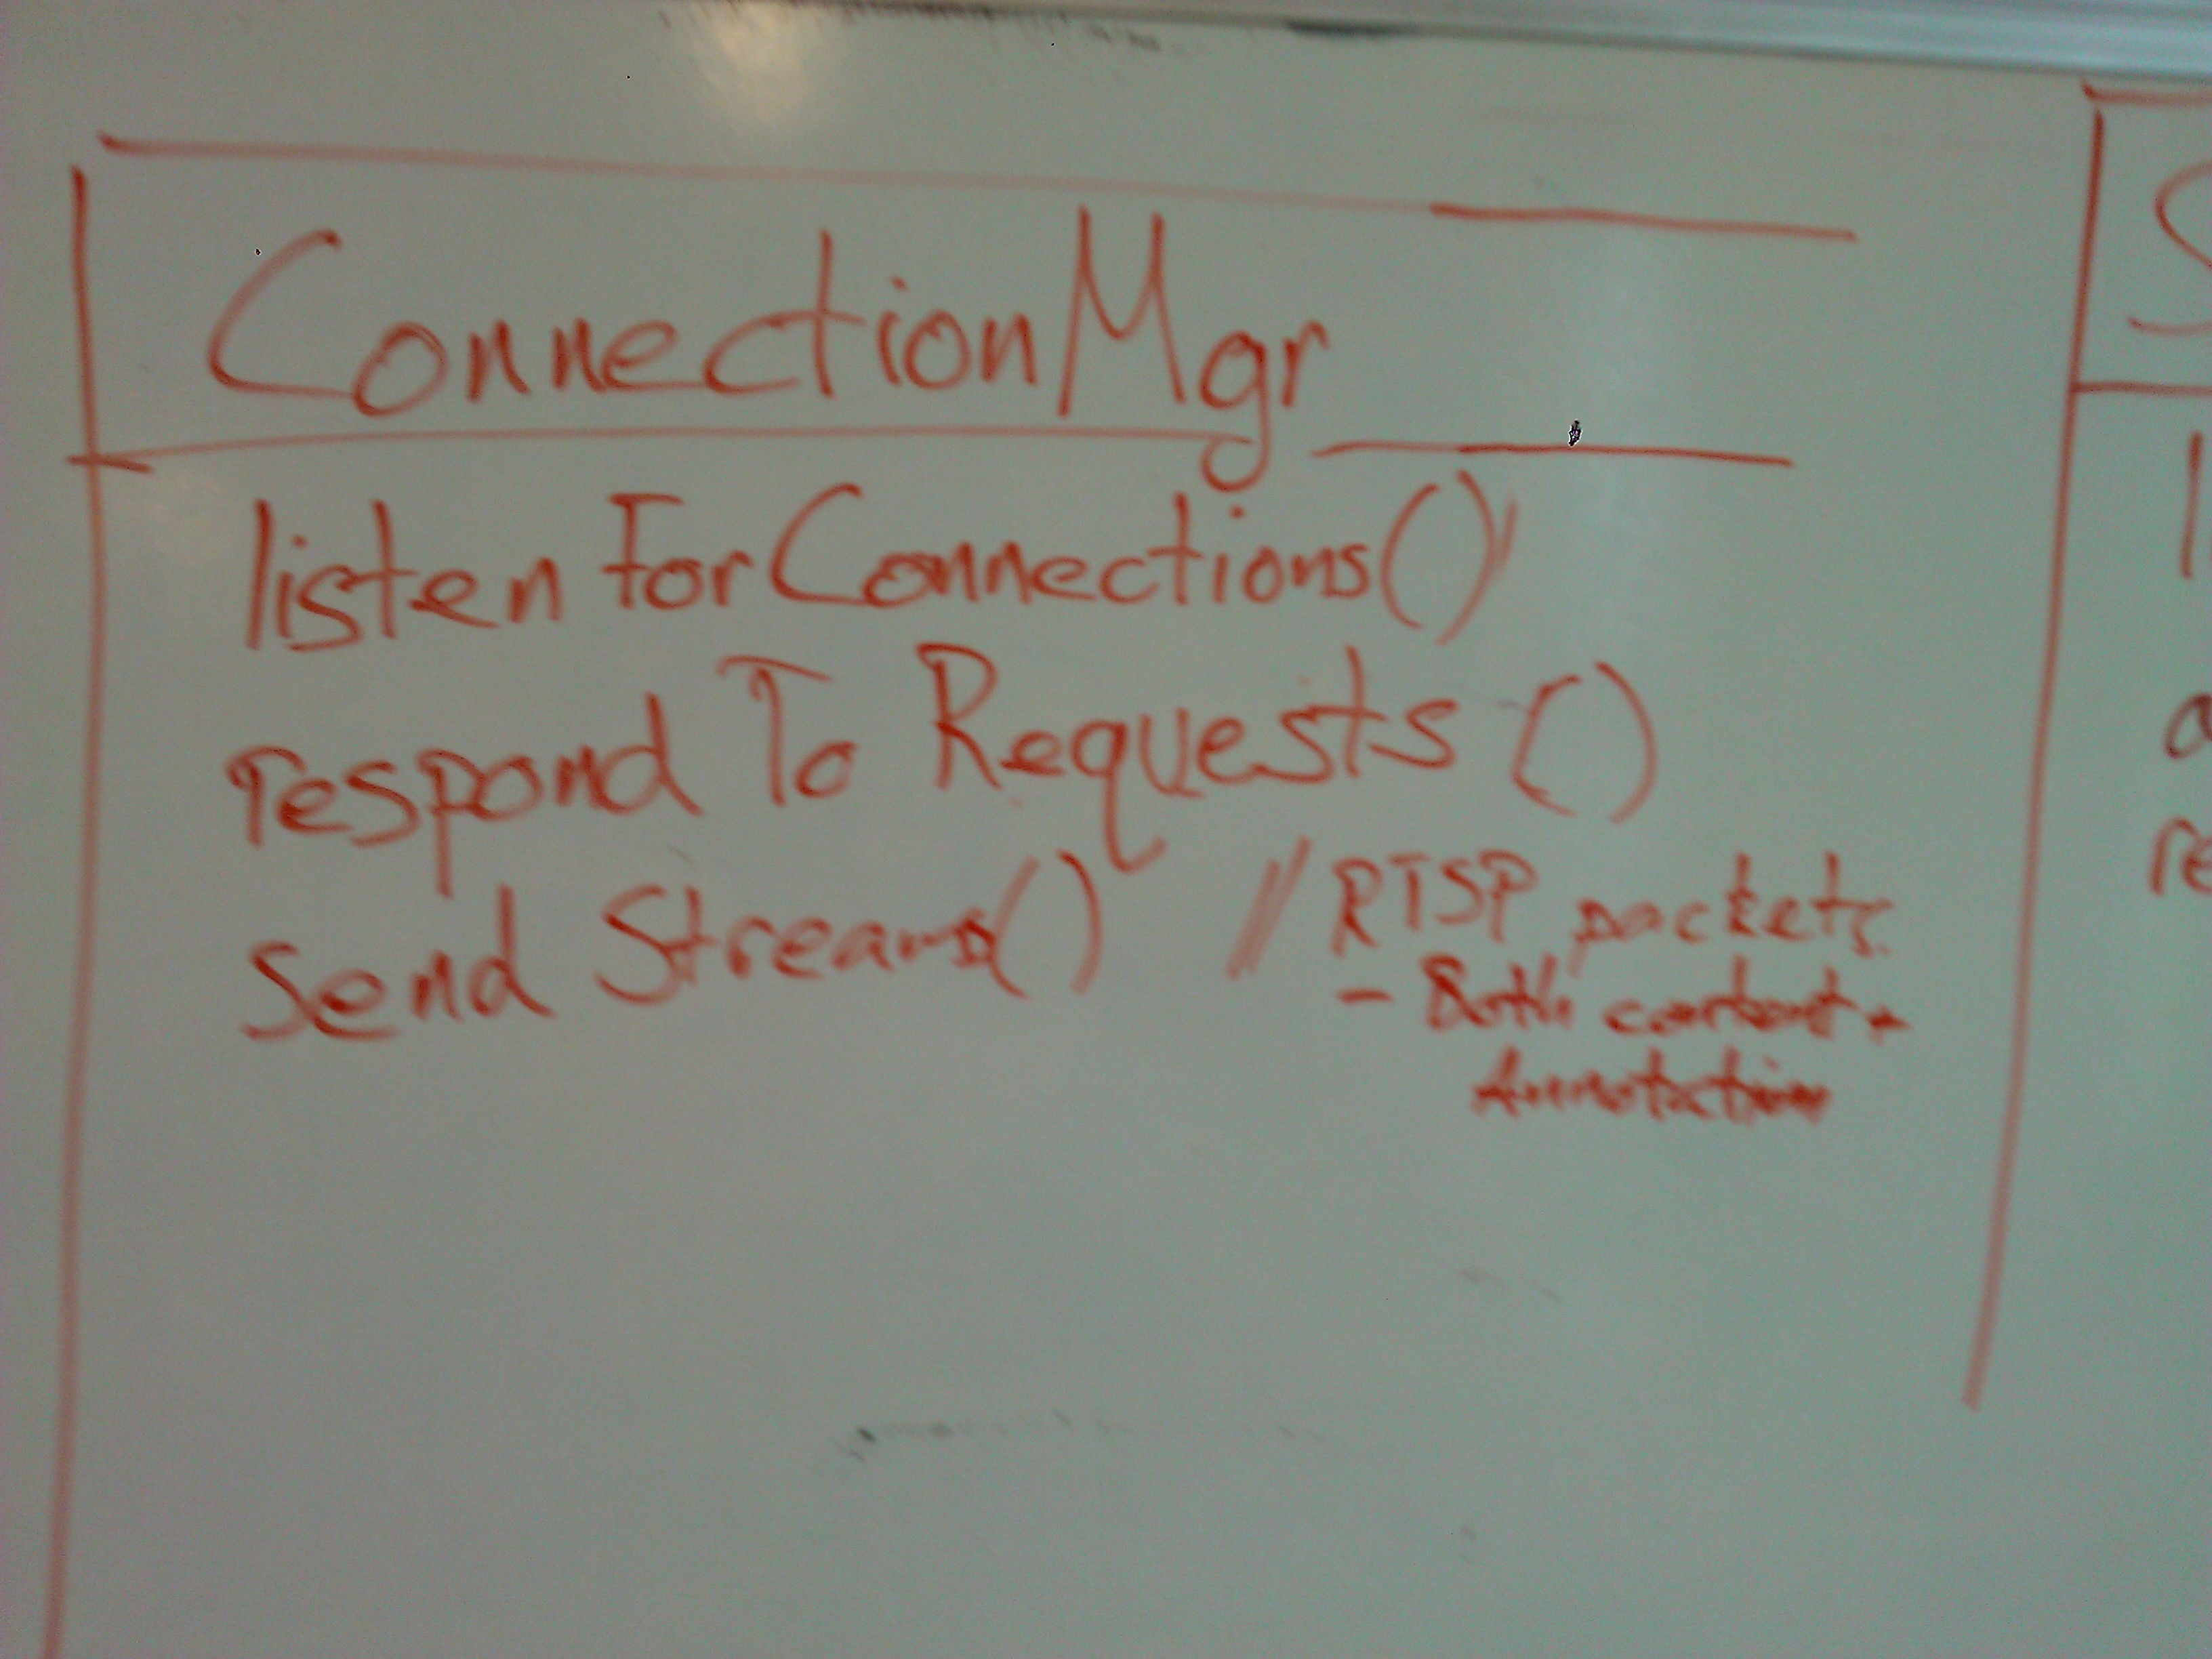 ConnectionMgr
listenForConnections()
respond To Requests ()
Send Streams() // RTSP packets
- Both content +
Annotation
S
l
a
re